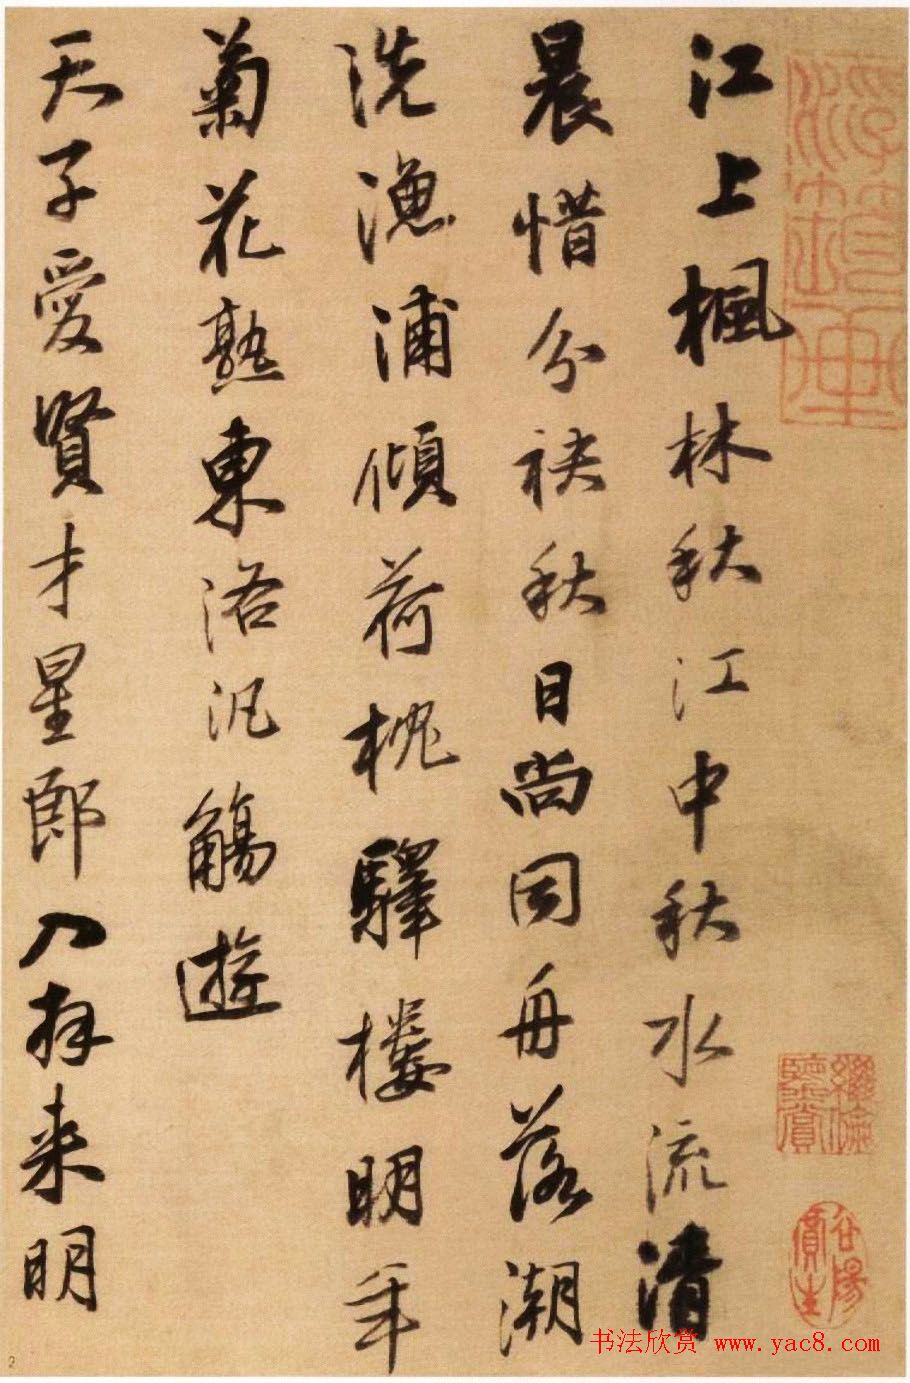 江上楓林秋江中秋水流清
晨惜分袂秋日尚同舟落潮
洗漁浦傾荷枕驛樓明年
菊花熟東洛汎觴遊
天子愛賢才星郎入拜来明
书法欣赏 www.yac8.com